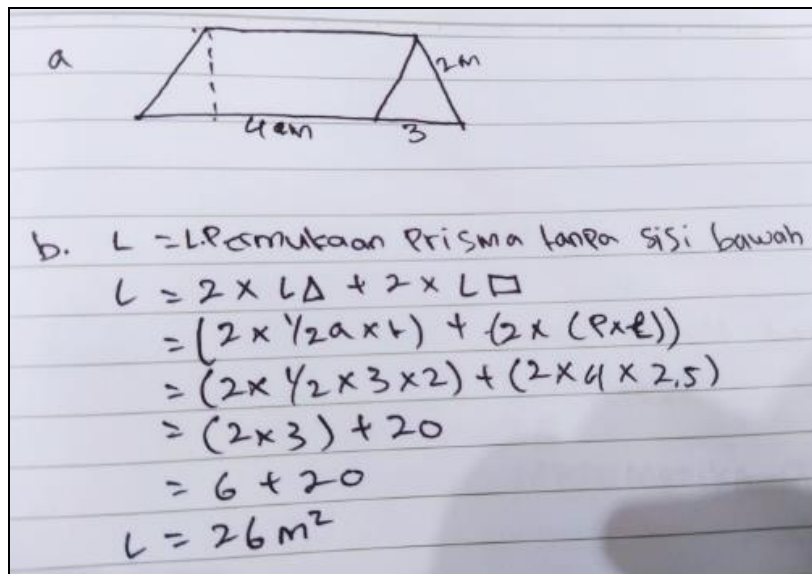 a
2m
4 cm
3
b. L = L.Permukaan Prisma tanpa sisi bawah
L = 2 x L△ + 2 x L▭
= (2 x 1/2 a x t) + (2 x (P x l))
= (2 x 1/2 x 3 x 2) + (2 x 4 x 2,5)
= (2 x 3) + 20
= 6 + 20
L = 26 m²